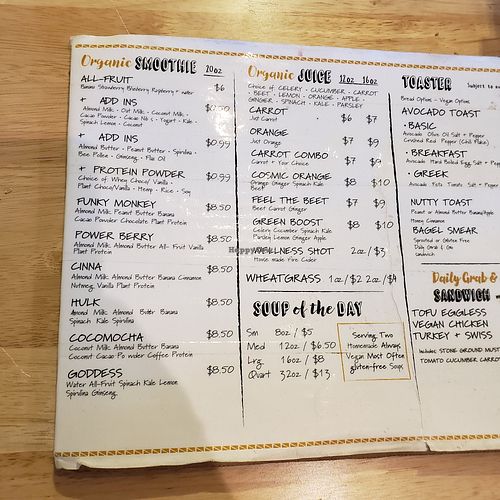 Organic SMOOTHIE 20oz
ALL-FRUIT
Banana Strawberry Blueberry Raspberry + water $6
+ ADD INS $0.50
Almond Milk • Oat Milk • Coconut Milk •
Cacao Powder • Cacao Nibs • Yogurt • Kale •
Spinach Lemon • Coconut
+ ADD INS
Almond Butter • Peanut Butter • Spirulina • $0.99
Bee Pollen • Ginseng • Flax Oil
+ PROTEIN POWDER $0.99
Choice of Whey Choc/ Vanilla •
Plant Choc/Vanilla • Hemp • Rice • Soy
FUNKY MONKEY $8.50
Almond Milk Peanut Butter Banana
Cacao Powder Chocolate Plant Protein
POWER BERRY $8.50
Almond Milk Almond Butter All- Fruit Vanilla
Plant Protein
CINNA $8.50
Almond Milk Almond Butter Banana Cinnamon
Nutmeg Vanilla Plant Protein
HULK $8.50
Almond Milk Almond Butter Banana
Spinach Kale Spirulina
COCOMOCHA $8.50
Coconut Milk Almond Butter Banana
Coconut Cacao Powder Coffee Protein
GODDESS $8.50
Water All-Fruit Spinach Kale Lemon
Spirulina Ginseng
Organic JUICE 12oz 16oz
Choice of CELERY • CUCUMBER • CARROT
• BEET • LEMON • ORANGE • APPLE •
GINGER • SPINACH • KALE • PARSLEY
CARROT $6 $7
Just Carrot
ORANGE $7 $9
Just Orange
CARROT COMBO $7 $9
Carrot + Your Choice
COSMIC ORANGE $8 $10
Orange Ginger Spinach Kale
Beet
FEEL THE BEET $7 $9
Beet Carrot Ginger
GREEN BOOST $8 $10
Celery Cucumber Spinach Kale
Parsley Lemon Ginger Apple
WELLNESS SHOT 2oz / $3
Home made Fire Cider
WHEATGRASS 1oz / $2 2oz / $4
SOUP of the DAY
Sm 8oz / $5
Med 12oz / $6.50
Lrg 16oz / $8
Quart 32oz / $13
Serving Two
Homemade Always
Vegan Most Often
gluten-free Soups
TOASTER
Bread Options • Vegan Options
AVOCADO TOAST
• BASIC
Avocado Olive Oil Salt + Pepper
Crushed Red Pepper (Chili Flake)
• BREAKFAST
Avocado Hard Boiled Egg Salt + Pepper
• GREEK
Avocado Feta Tomato Salt + Pepper
NUTTY TOAST
Peanut or Almond Butter Banana/Apple
Honey Cinnamon
BAGEL SMEAR
Sprouted or Gluten Free
Daily Grab & Go
sandwich
Daily Grab &
SANDWICH
TOFU EGGLESS
VEGAN CHICKEN
TURKEY + SWISS
Includes: STONE GROUND MUST
TOMATO CUCUMBER CARROT